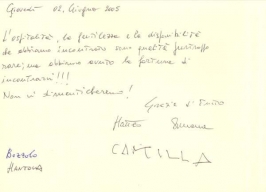 Giovedì 02, Giugno 2005
L'ospitalità, la gentilezza e la disponibilità
che abbiamo incontrato sono qualità purtroppo
rare, ma abbiamo avuto la fortuna di
incontrarvi!!!
Non vi dimenticheremo!
Grazie di tutto
Matteo Simona
CAMILLA
BOZZOLO
MANTOVA